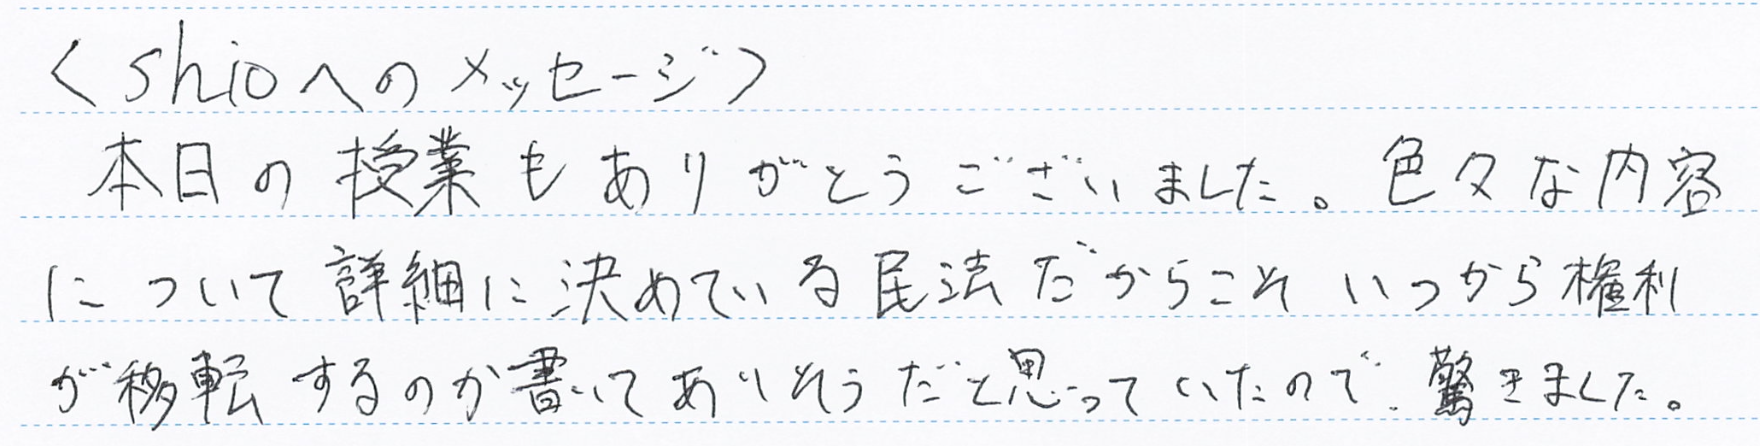 〈shioへのメッセージ〉
本日の授業もありがとうございました。色々な内容
について詳細に決めている民法だからこそいつから権利
が移転するのか書いてありそうだと思っていたので、驚きました。